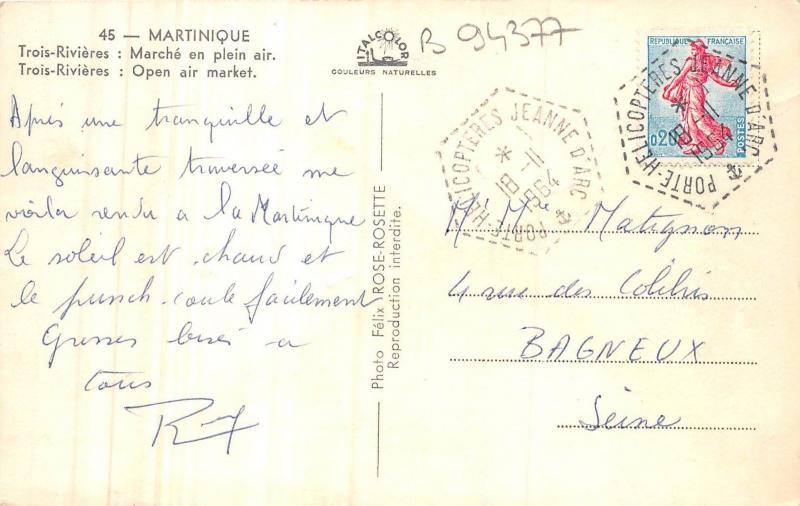 45 — MARTINIQUE
Trois-Rivières : Marché en plein air.
Trois-Rivières : Open air market.
ITALCOLOR
COULEURS NATURELLES
B 94377
REPUBLIQUE FRANÇAISE
0,20
POSTES
PORTE HELICOPTERES JEANNE D'ARC
18 -11
1964
PORTE HELICOPTERES JEANNE D'ARC
18 -11
1964
Après une tranquille et
languissante traversée me
voila rendu a la Martinique
Le soleil est chaud et
le punch coule facilement
Grosses bises a
tous
Photo Félix ROSE-ROSETTE
Reproduction interdite.
Mr Mme Matignon
4 rue des Colibris
BAGNEUX
Seine